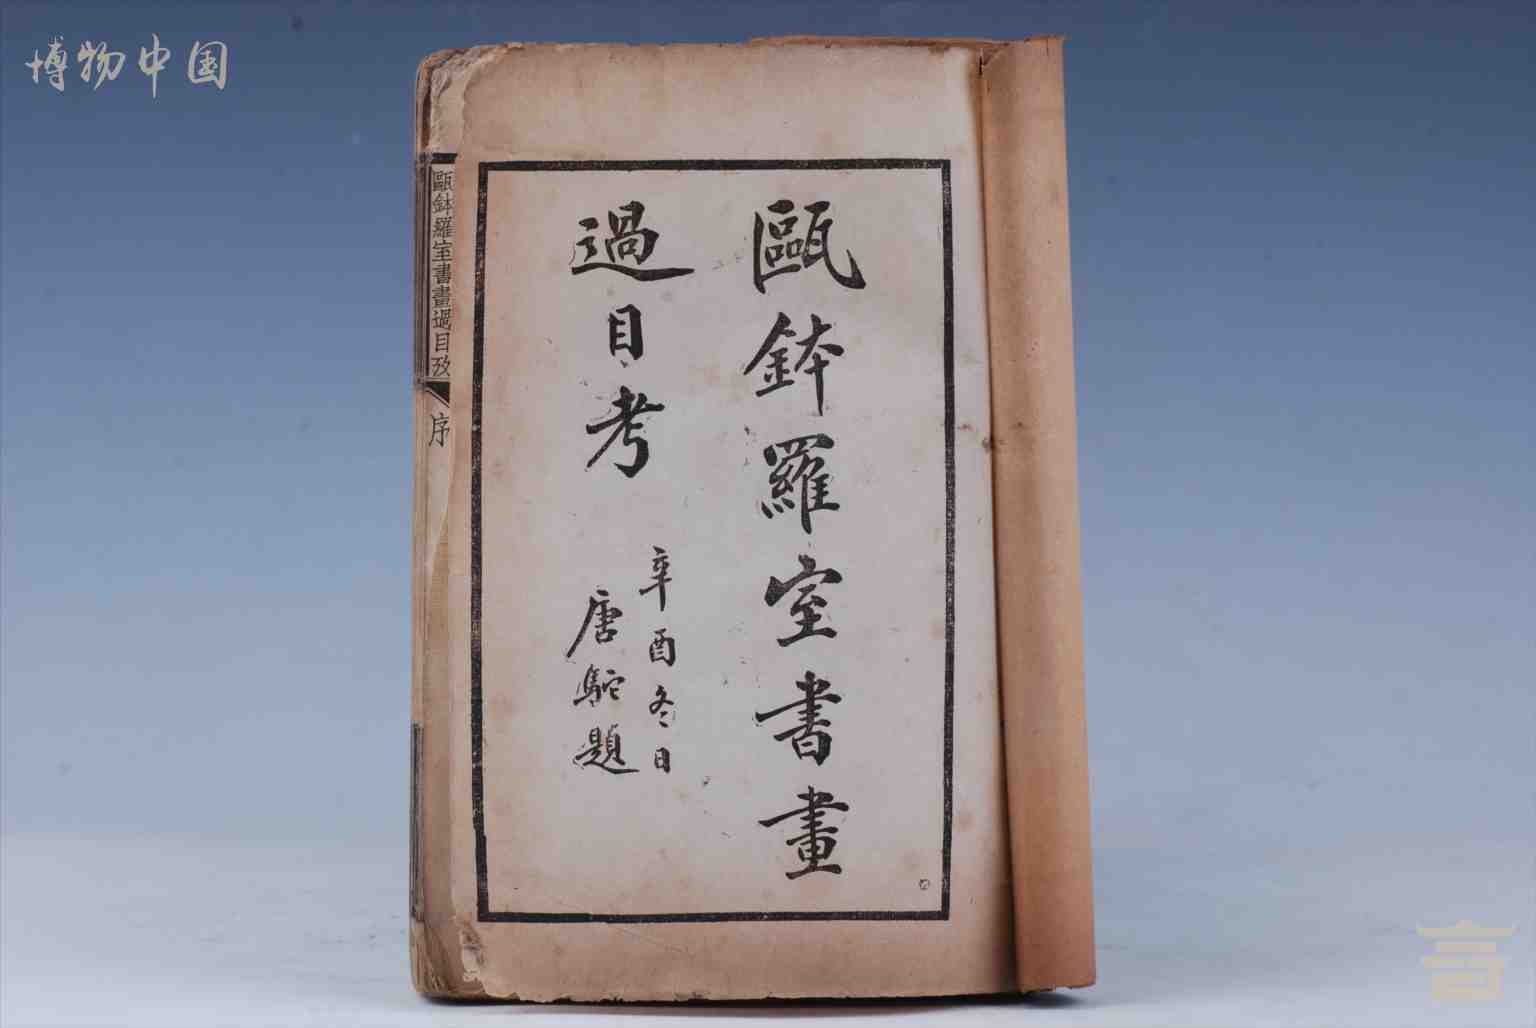 博物中国
甌鉢羅室書畫
過目考
辛酉冬日
唐駝題
甌鉢羅室書畫過目攷
序